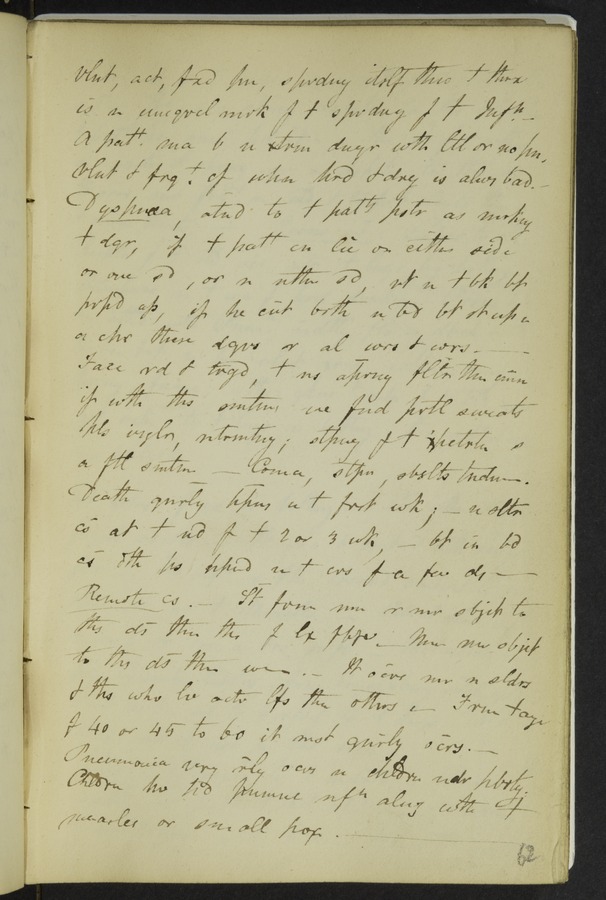 vlnt, act, fxd pn, sprdng itslf thro t thrx
is n uneqvcl mrk f t sprdng f t Inf.n
A patt. ma b n xtrm dngr with ltl or no pn,
vlnt & frqt. cf whn hrd & dry is alws bad.
Dyspnœa, atnd to t patts pstr as mrking
t dgr, if t patt cn lie on either side
or one sd, or n nthr sd, nt n t bk bt
prpd up, if he cnt both n bd bt st up n
a chr these dgrs r al wrs & wrs
Face rd & trgd, t ns aprng
if with this smtms we fnd prtl sweats
pls irglr, ntrmtng; stpng f t
a ftl smtm — Coma, stpr, sbslts tndnm.
Death gnrly hpns n t frst wk; — n othr
cs at t nd f t 2 or 3 wk, — bt in bd
cs dth hs hpnd n t crs f a few ds —
Remote cs. — St frm mn r mr sbjct to
ths ds thn ths f lx fbrs. Mn mr sbjct
to ths ds thn wmn. — It ocrs mr n sldrs
& ths who lv actv lfs thn othrs — From t age
f 40 or 45 to 60 it mst gnrly ocrs. —
Pneumonia very rly ocrs n childrn undr pbrty.
Childrn hv hd pnmnc nfn alng with
measles or small pox.
62